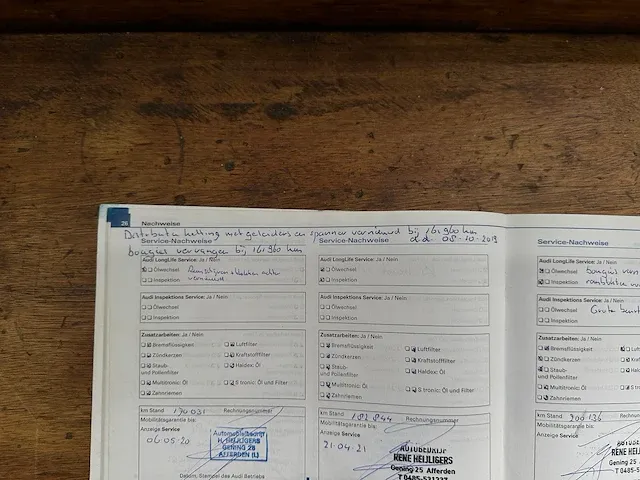 26 Nachweise
Distributie ketting met geleiders en spanner vernieuwd bij 161960 km
d.d. 08-10-2019
bougies vervangen bij 161960 km
Service-Nachweise
Audi LongLife Service: Ja / Nein
Ölwechsel
Inspektion
Remschijven + blokken achter
vernieuwd
Audi Inspektions Service: Ja / Nein
Ölwechsel
Inspektion
Zusatzarbeiten: Ja / Nein
Bremsflüssigkeit Luftfilter
Zündkerzen Kraftstofffilter
Staub- Haldex: Öl
und Pollenfilter
Multitronic: Öl S tronic: Öl und Filter
Zahnriemen
km Stand 174031 Rechnungsnummer
Mobilitätsgarantie bis:
Anzeige Service
06.05.20
Automobielbedrijf
H. HEIJLIGERS
GENING 25
AFFERDEN (L)
Datum, Stempel des Audi Betriebs
Service-Nachweise
Audi LongLife Service: Ja / Nein
Ölwechsel
Inspektion
Audi Inspektions Service: Ja / Nein
Ölwechsel
Inspektion
Zusatzarbeiten: Ja / Nein
Bremsflüssigkeit Luftfilter
Zündkerzen Kraftstofffilter
Staub- Haldex: Öl
und Pollenfilter
Multitronic: Öl S tronic: Öl und Filter
Zahnriemen
km Stand 182844 Rechnungsnummer
Mobilitätsgarantie bis:
Anzeige Service
21-04-21
AUTOBEDRIJF
RENE HEIJLIGERS
Gening 25 Afferden
T 0485-531237
Service-Nachweise
Audi LongLife Service: Ja / Nein
Ölwechsel bougies
Inspektion
Audi Inspektions Service: Ja / Nein
Ölwechsel Grote
Inspektion
Zusatzarbeiten: Ja / Nein
Bremsflüssigkeit
Zündkerzen
Staub-
und Pollenfilter
Multitronic: Öl
Zahnriemen
km Stand 200136
Mobilitätsgarantie bis:
Anzeige Service